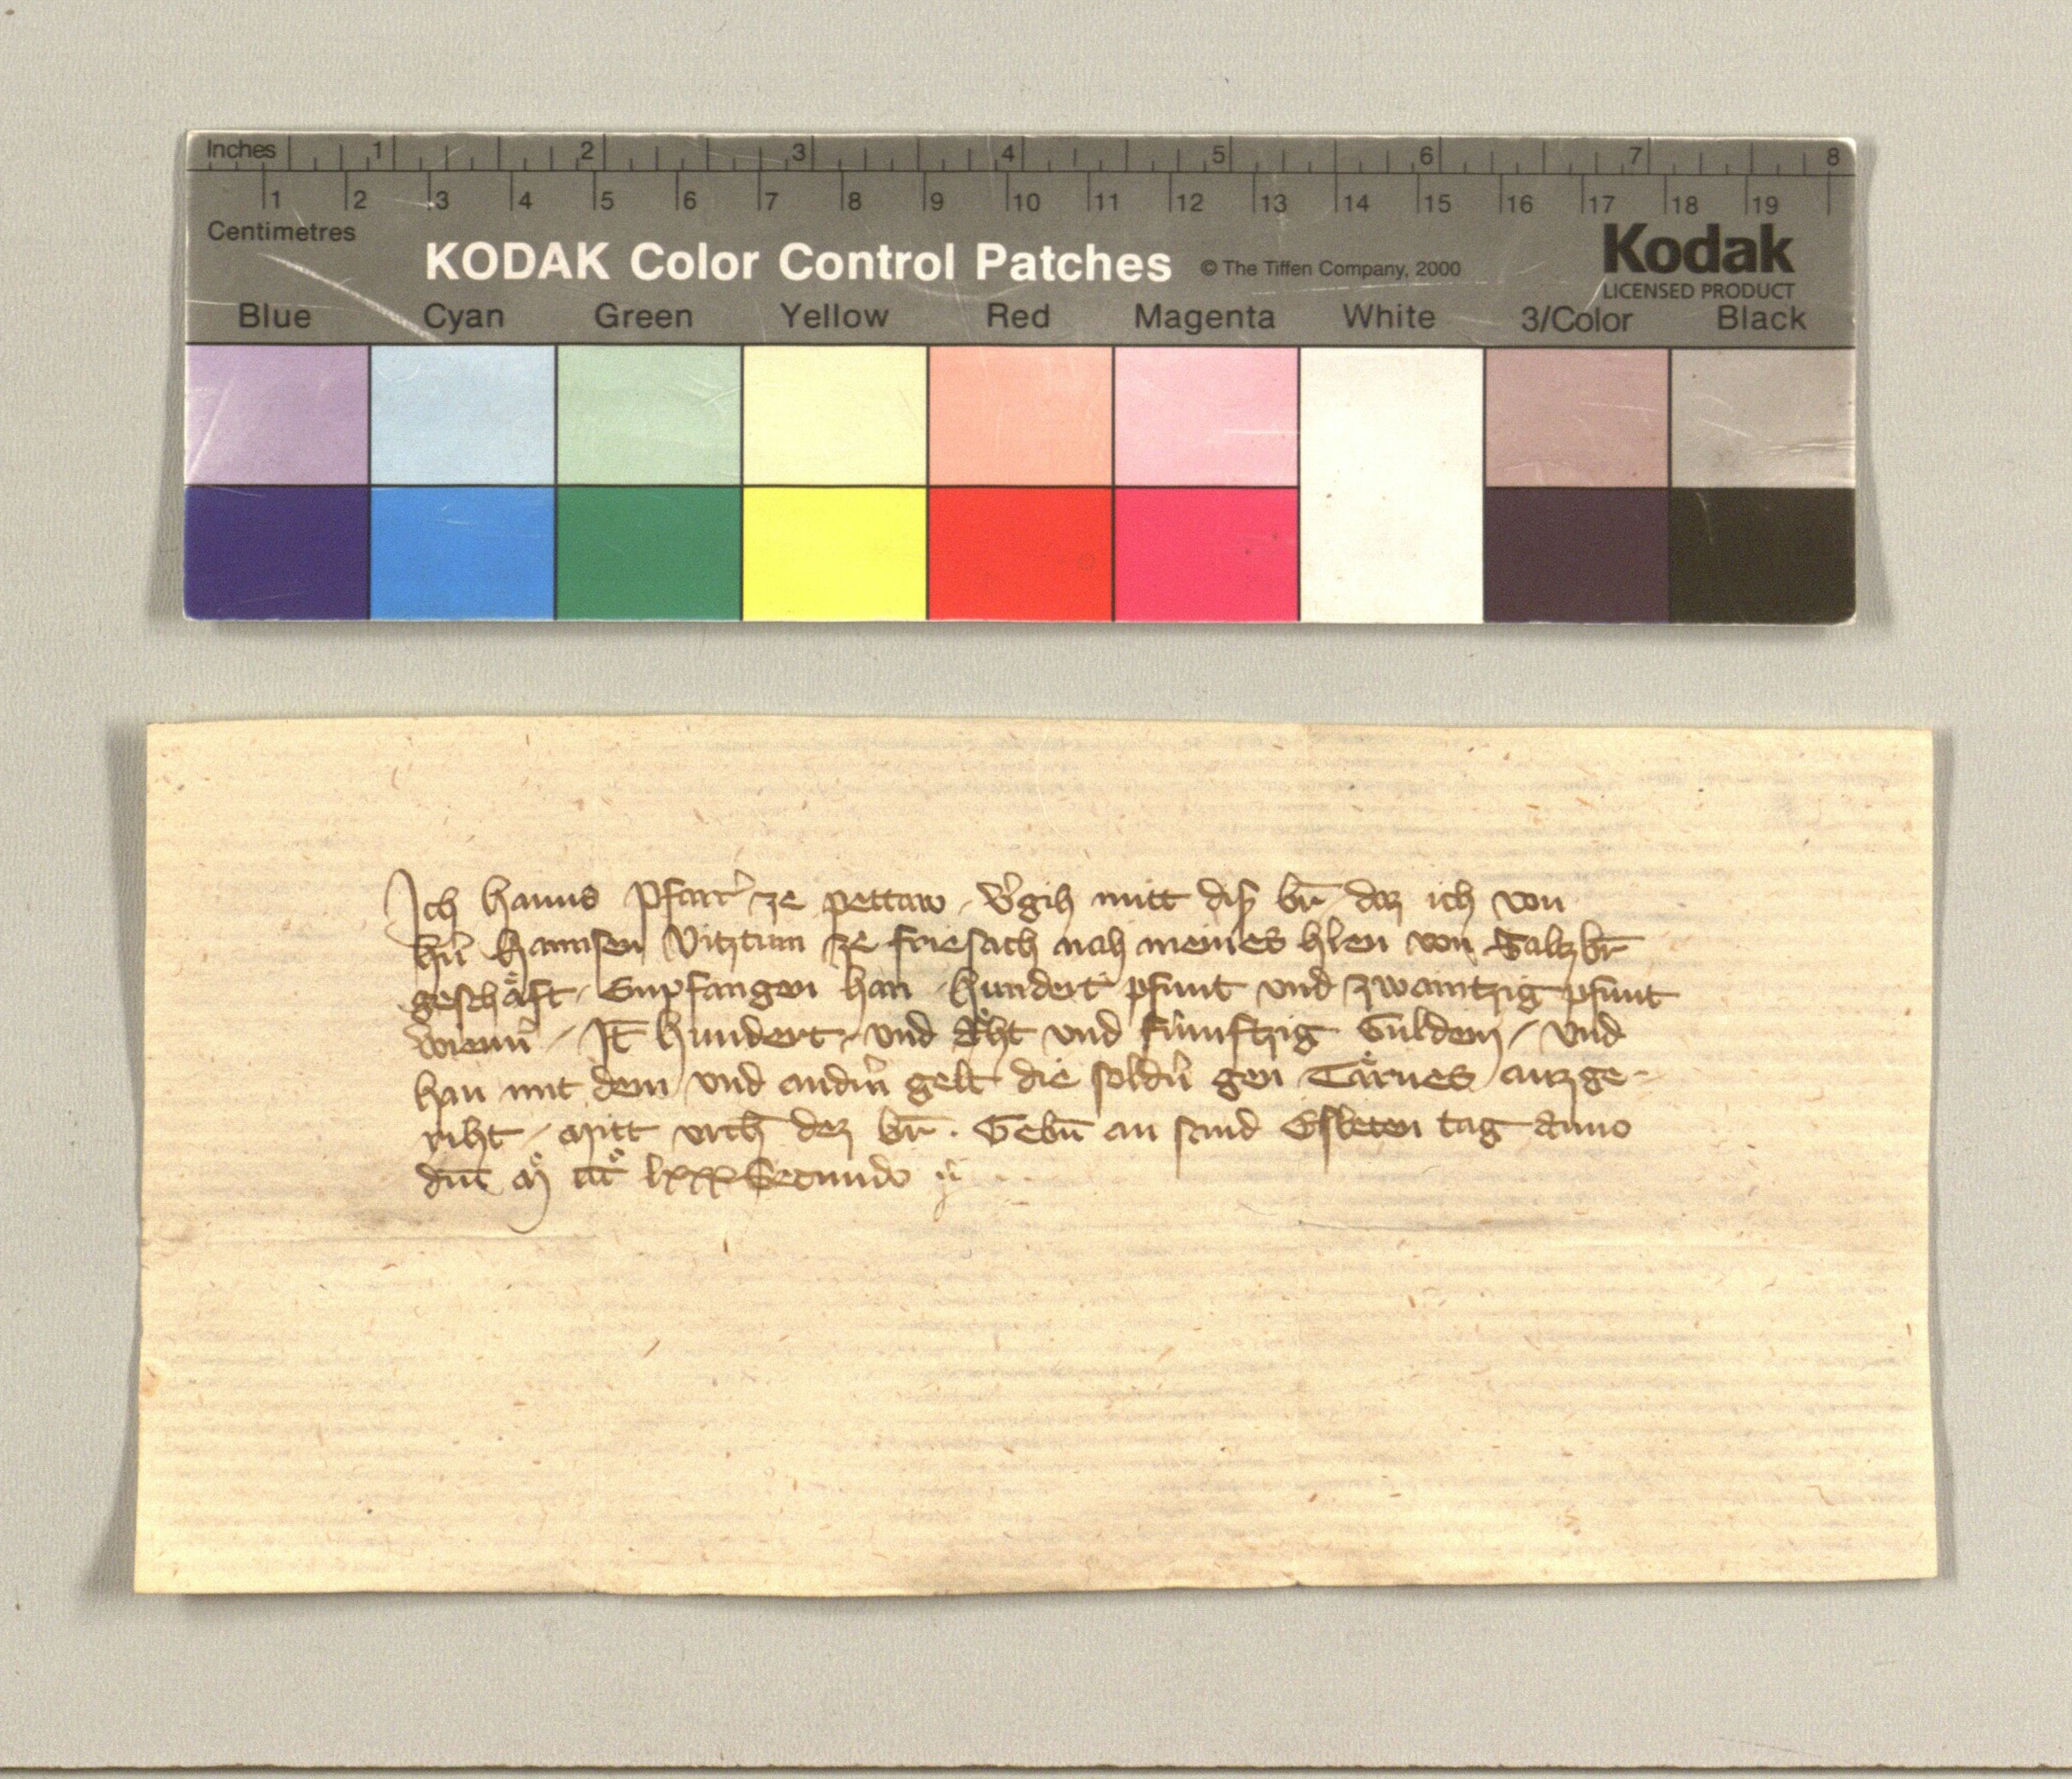 Inches 1 2 3 4 5 6 7 8
1 2 3 4 5 6 7 8 9 10 11 12 13 14 15 16 17 18 19
Centimetres
KODAK Color Control Patches © The Tiffen Company, 2000 Kodak
LICENSED PRODUCT
Blue Cyan Green Yellow Red Magenta White 3/Color Black
Ich Hanns Pfarr̄ ze pettaw v̄gih mitt dis br̄ daz ich von
hn̄ Hannsen Vitztum ze friesach nah meines h̄ren von Saltzbr̄
geschäft Enpfangen han hundert pfunt vnd zwaintzig pfunt
wienn̄ / It̄ hundert vnd Aͤht vnd fünftzig Guldein / vnd
han mit dem vnd andm̄ gelt die soldn̄ gen Täruis auzge-
riht / mitt vrch̄ dez br̄ . Gebn̄ an sand tag Anno
dn̄i mͦ cccͦ lxxx Secundo